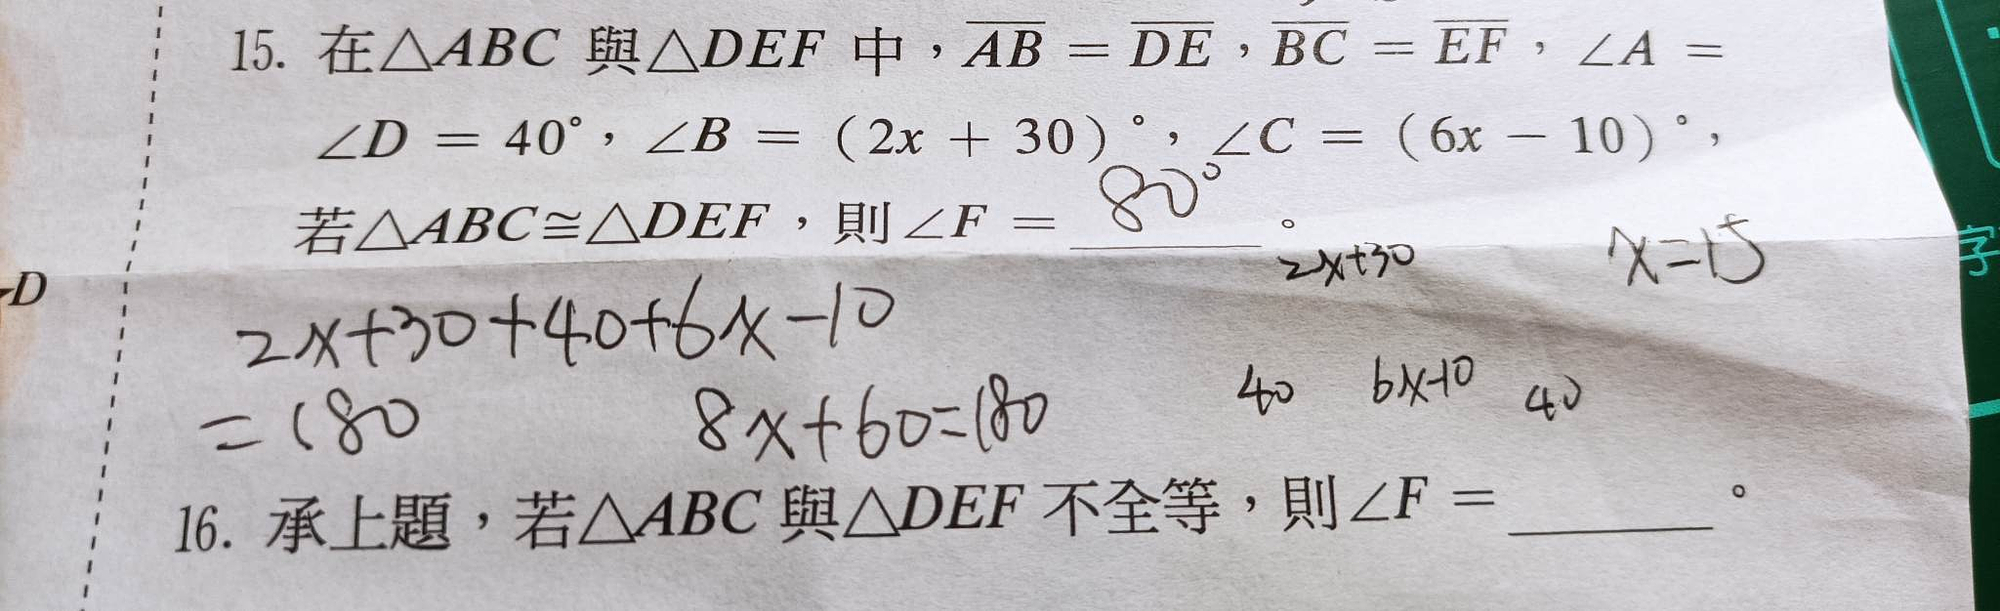 15. 在△ABC 與△DEF 中，AB = DE，BC = EF，∠A =
∠D = 40°，∠B =（2x + 30）°，∠C =（6x − 10）°，
若△ABC≅△DEF，則∠F = 80° 。
2x+30
x=15
D
2x+30+40+6x-10
=180
8x+60=180
40 6x-10 40
16. 承上題，若△ABC 與△DEF 不全等，則∠F = ______ 。
字